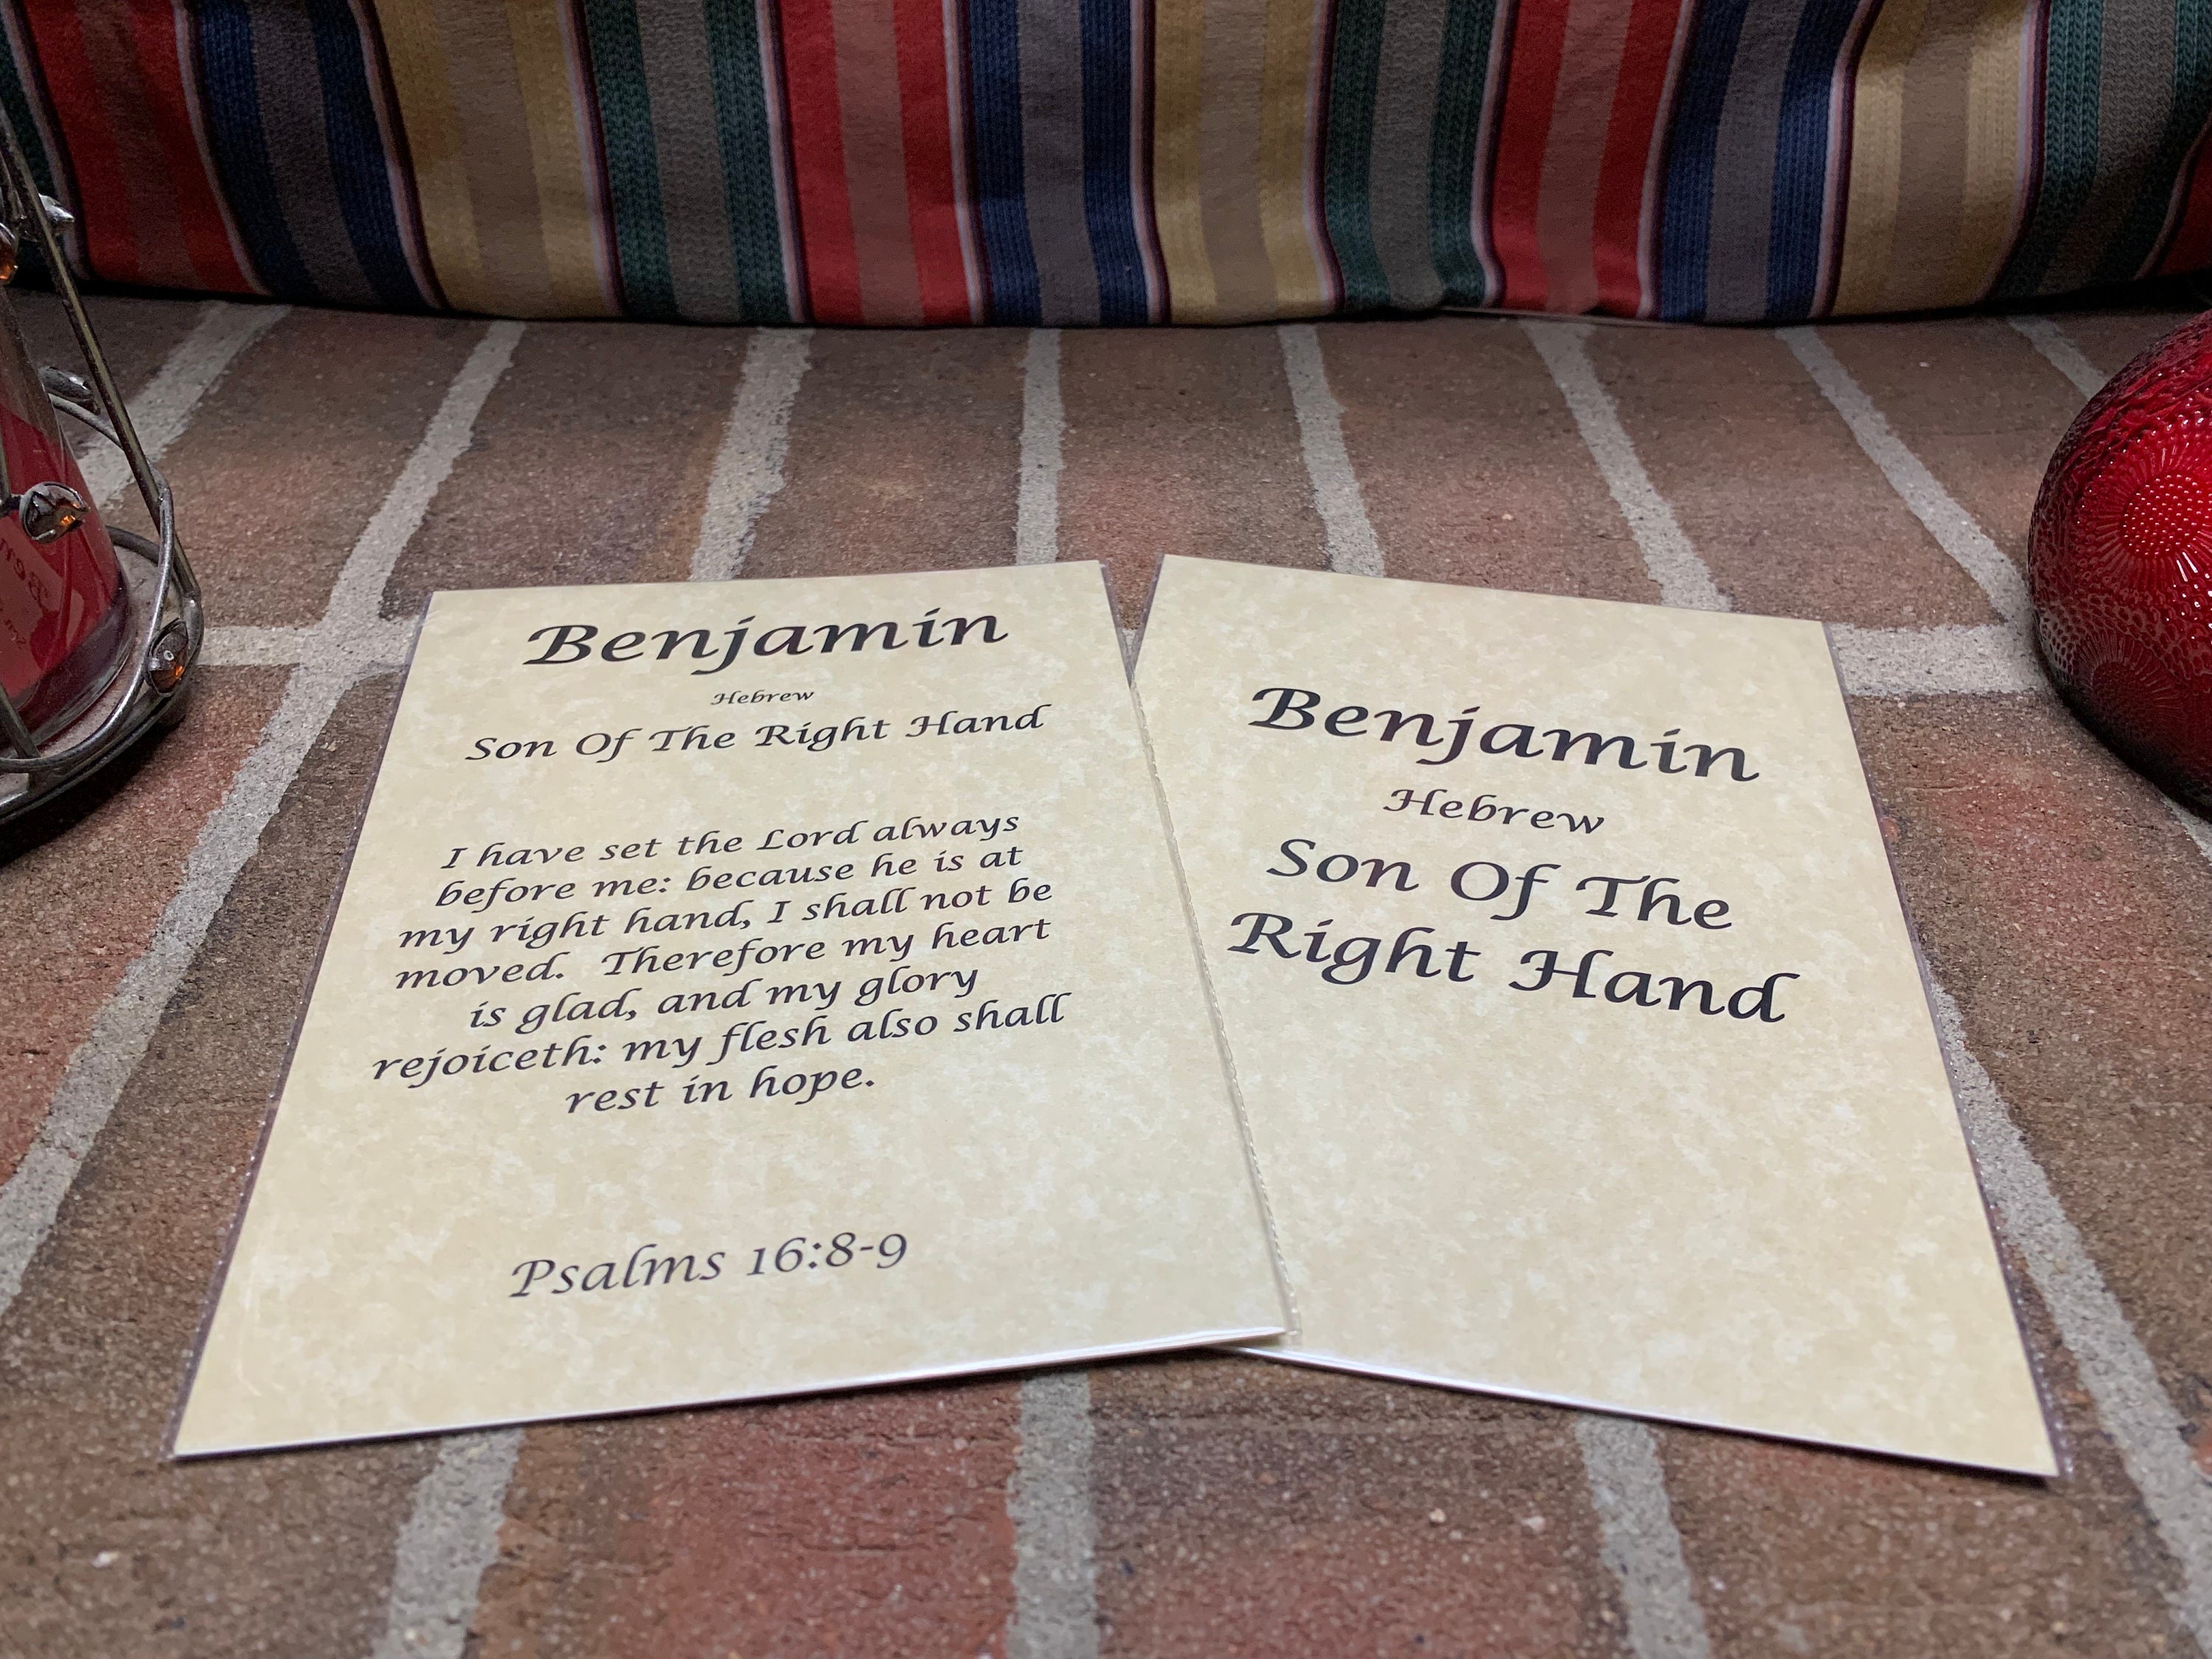 Benjamin
Hebrew
Son Of The Right Hand
I have set the Lord always
before me: because he is at
my right hand, I shall not be
moved. Therefore my heart
is glad, and my glory
rejoiceth: my flesh also shall
rest in hope.
Psalms 16:8-9
Benjamin
Hebrew
Son Of The
Right Hand